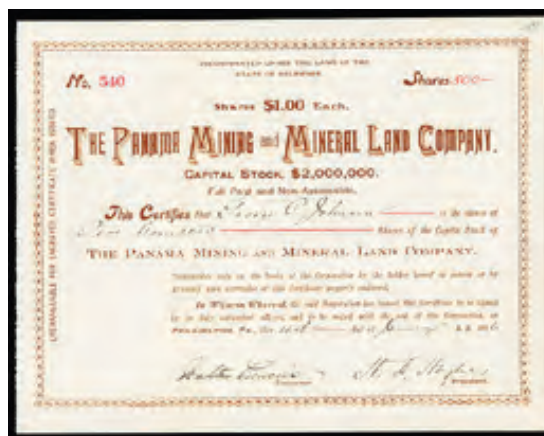 INCORPORATED UNDER THE LAWS OF THE
STATE OF DELAWARE
No. 540
Shares 500
Shares $1.00 Each.
The Panama Mining and Mineral Land Company.
Capital Stock, $2,000,000.
Full Paid and Non-Assessable.
This Certifies that Johnson is the owner of
Shares of the Capital Stock of
The Panama Mining and Mineral Land Company.
Transferable only on the books of the Corporation by the holder hereof in person or by
Attorney upon surrender of this Certificate properly endorsed.
In Witness Whereof, the said Corporation has caused this Certificate to be signed
by its duly authorized officers, and to be sealed with the seal of the Corporation, at
Philadelphia, Pa., this day of A.D.
President.
EXCHANGEABLE FOR ENGRAVED CERTIFICATE WHEN ISSUED